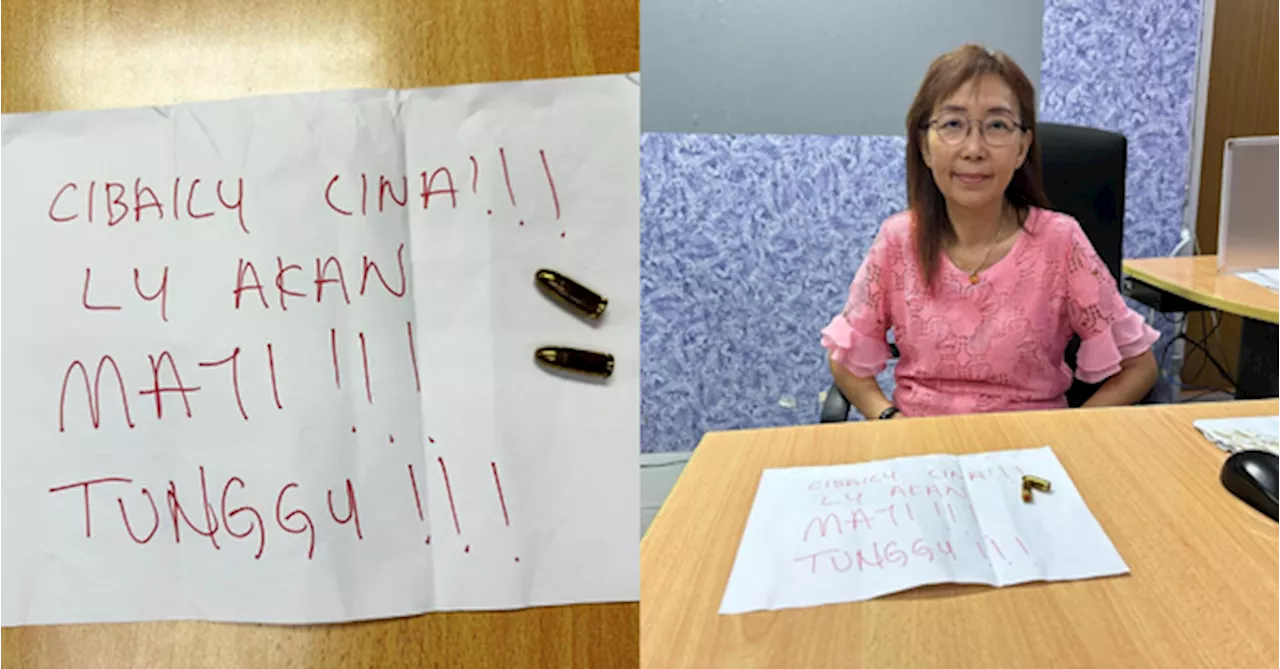 CIBAI LU CINA!!!
LU AKAN
MATI!!!
TUNGGU!!!
CIBAI LU CINA!!!
LU AKAN
MATI!!!
TUNGGU!!!